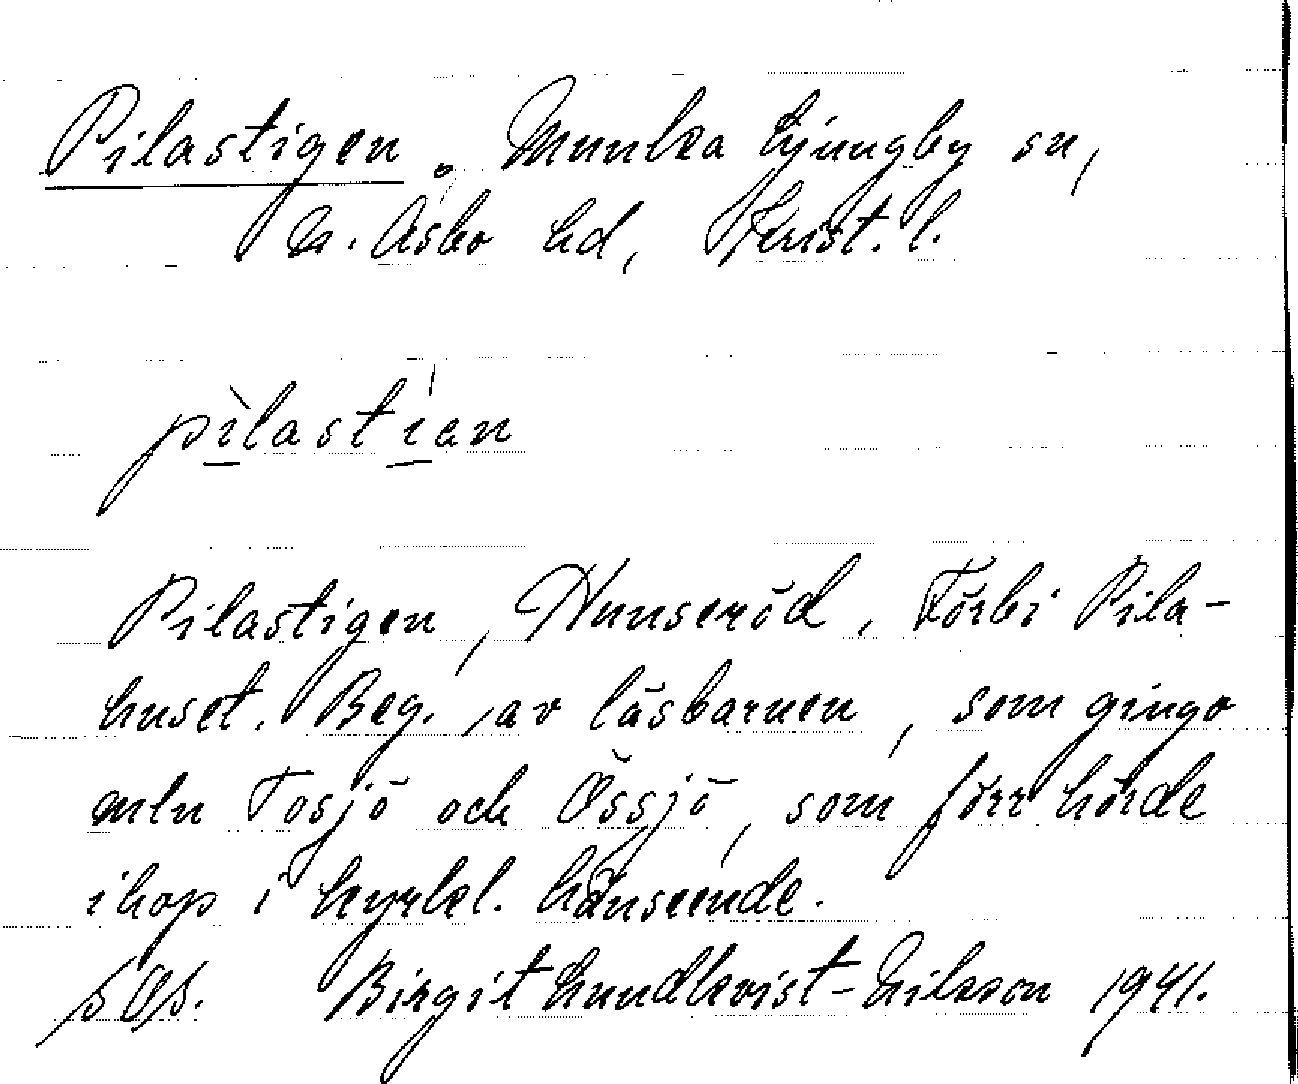 Pilastigen. Munka Ljungby sn,
N. Åsbo hd, Krist. l.
pìlastían
Pilastigen, Hunseröd. Förbi Pila-
huset. Beg. av läsbarnen, som gingo
mln Tosjö och Össjö, som förr hörde
ihop i kyrkl. hänseende.
Birgit Lundkvist-Nilsson 1941.